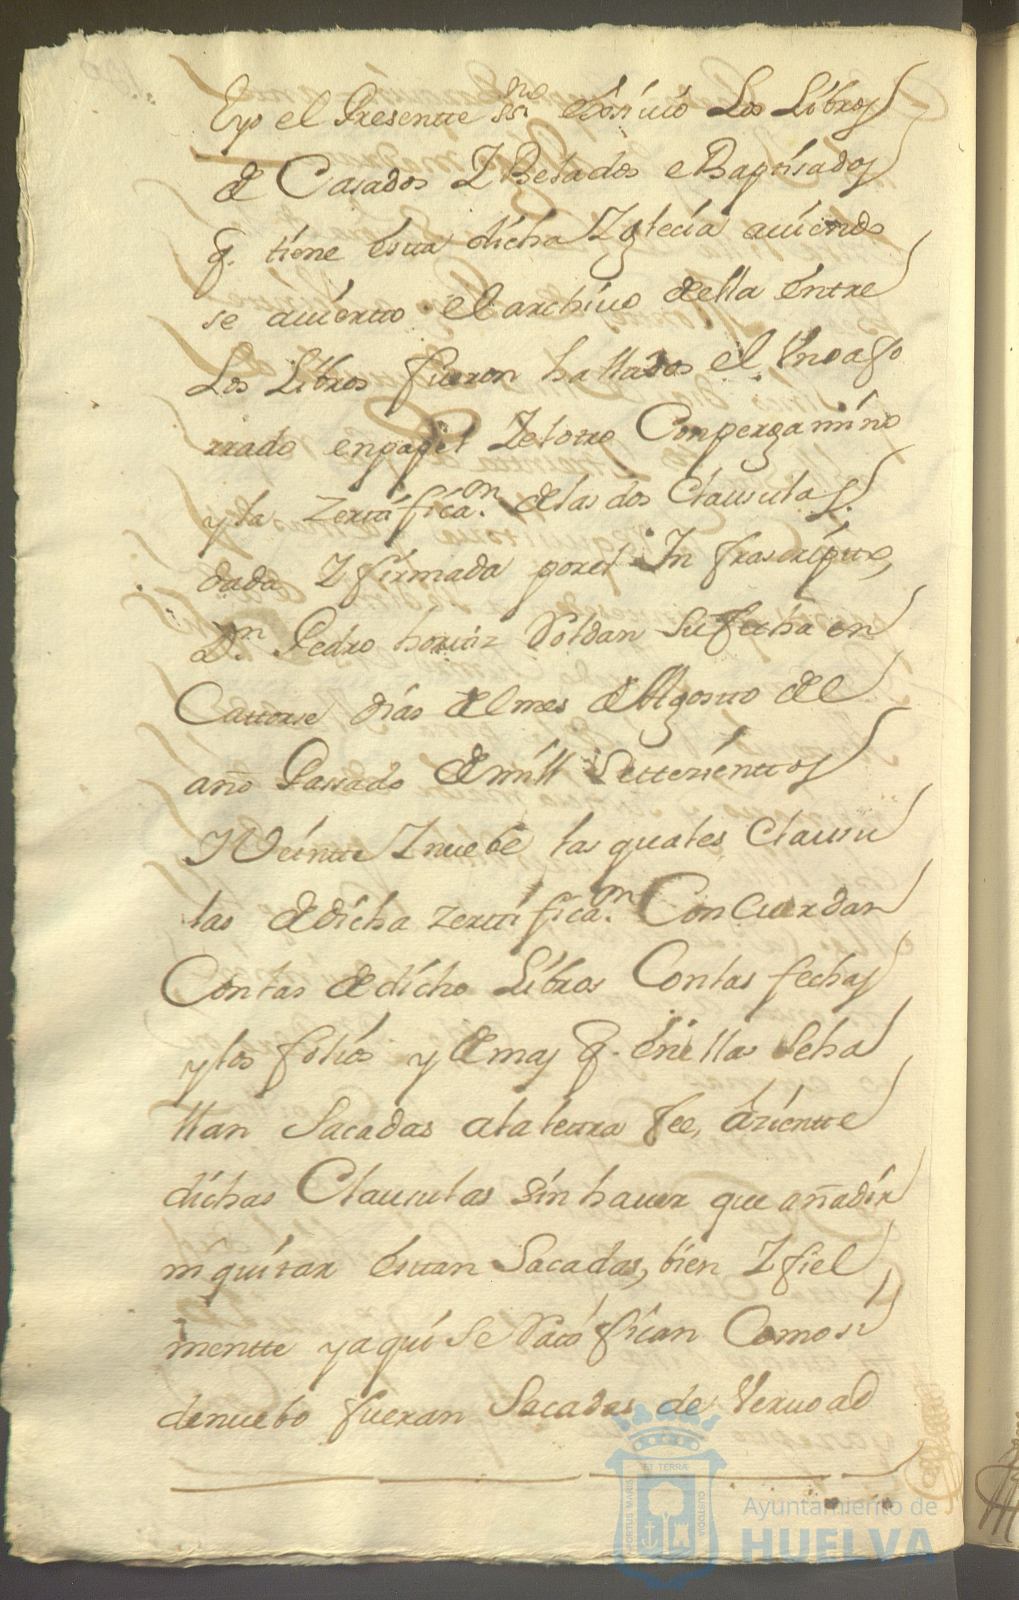 Eyo el Presentte ssno exsivio Los Libros
de Casados Y Belados e Baptisados
q. tiene estta dicha Yglecia aviendo
se avierto el archivo della entre
Los Libros fueron hallados el Uno afo
rrado enpapel Yelotro Conpergamino
yla zerttificaon. delas dos Clausulas.
dada Y firmada porel Infrascriptto,
Dn. Pedro horttiz Roldan Sufecha en
Cattorse dias delmes de Agostto del
año Passado demill Settesienttos
Y Veintte Ynuebe las quales Clausu
las dedicha zerttificaon. Concuerdan
Conlas dedicho Libros Conlas fechas
ylos folios y demas q. enellas Seha
llan Sacadas alaletra fee, aziente
dichas Clausulas sin haver que añadir
ni quitar esttan Sacadas, bien Y fiel
mentte yaqui Se Rattifican Como si
denuebo fueran Sacadas de Verdad
PORTUS MARIS ET TERRAE CUSTODIA
Ayuntamiento de
HUELVA